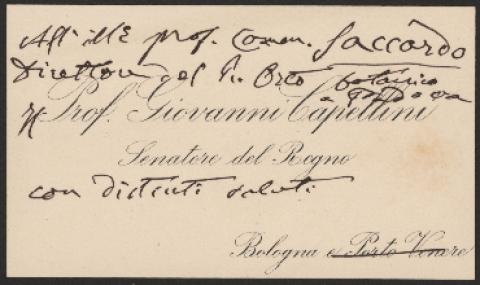 All' ill.e prof. Comm. Saccardo
Direttore del R. Orto botanico
a Padova
il Prof. Giovanni Capellini
Senatore del Regno
con distinti saluti
Bologna e Porto Venere